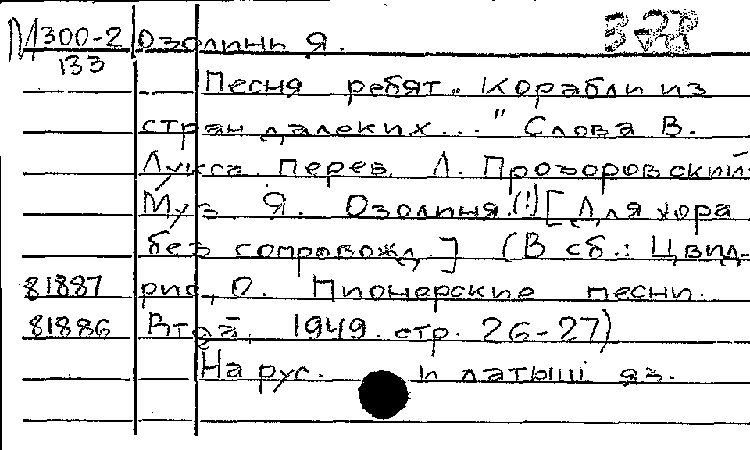 М300-2 Озолинь Я. 328
133
Песня ребят „Корабли из
стран далеких..." Слова В.
Лукса. Перев. Л. Прозоровский
Муз. Я. Озолиня.(!) [Для хора
без сопровожд.] (В сб.: Цвид-
81887 рис, О. Пионерские песни.
81886 Втой, 1949. стр. 26-27)
На рус. и латыш яз.